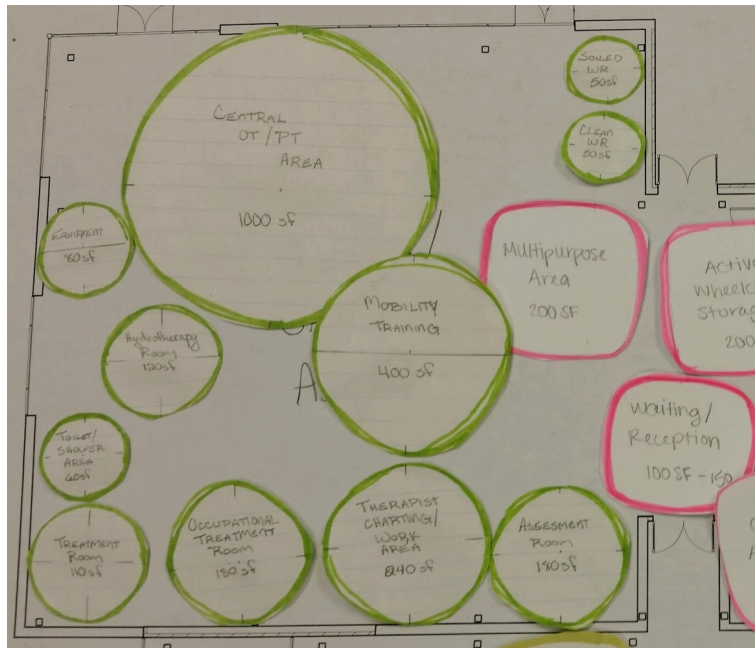 CENTRAL
OT/PT
AREA
1000 sf
SOILED
WR
50sf
CLEAN
WR
50sf
EQUIPMENT
80sf
Multipurpose
Area
200 SF
MOBILITY
TRAINING
400 sf
Hydrotherapy
Room
120sf
Waiting/
Reception
100 SF - 150
TOILET/
SHOWER
AREA
60sf
TREATMENT
ROOM
110sf
OCCUPATIONAL
TREATMENT
ROOM
180sf
THERAPIST
CHARTING/
WORK
AREA
240 sf
ASSESMENT
ROOM
180sf
Storag
200